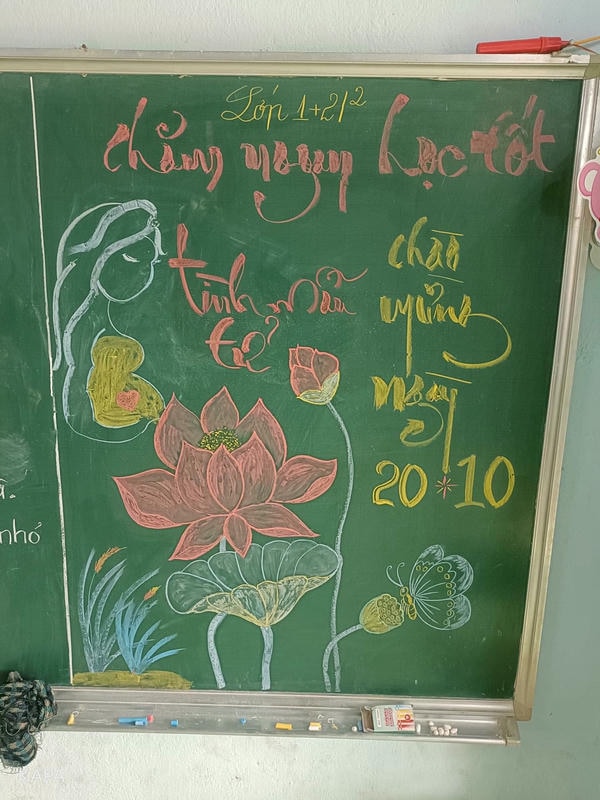 Lớp 1+2/2
chăm ngoan học tốt
tình mẫu
tử
chào
mừng
ngày
20*10
nhỏ